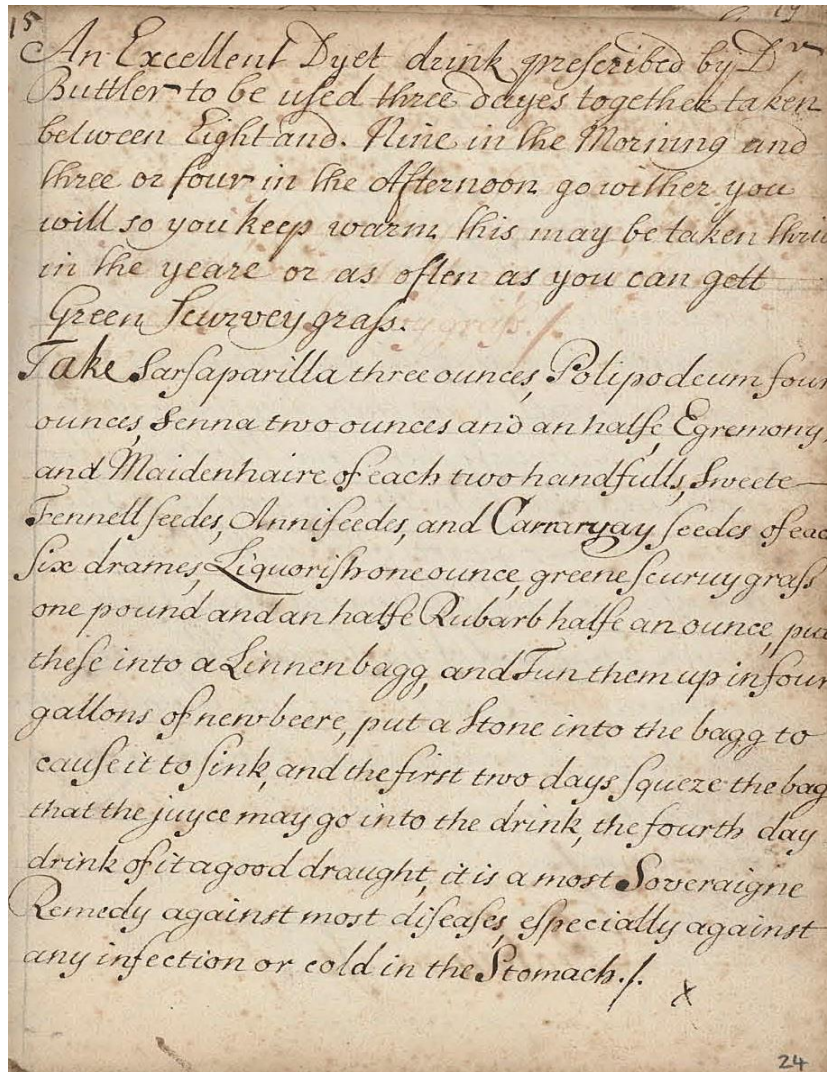 15
An Excellent Dyet drink prescribed by Dr
Buttler to be used three dayes together taken
between Eight and. Nine in the Morning and
three or four in the Afternoon go wither you
will so you keep warm this may be taken
in the yeare or as often as you can gett
Green Scurvey grass.
Take Sarsaparilla three ounces, Polipodeum four
ounces, Senna two ounces and an halfe, Egremony,
and Maidenhaire of each two handfulls, Sweete
Fennell seedes, Anniseedes, and Carraryay seedes of eac
six drames, Liquorish one ounce, greene scuruy grass
one pound and an halfe Rubarb halfe an ounce, put
these into a Linnen bagg, and Tun them up in four
gallons of new beere, put a Stone into the bagg to
cause it to sink, and the first two days squeze the bag
that the juyce may go into the drink, the fourth day
drink of it a good draught, it is a most Soveraigne
Remedy against most diseases, especially against
any infection or cold in the Stomach./.
x
24